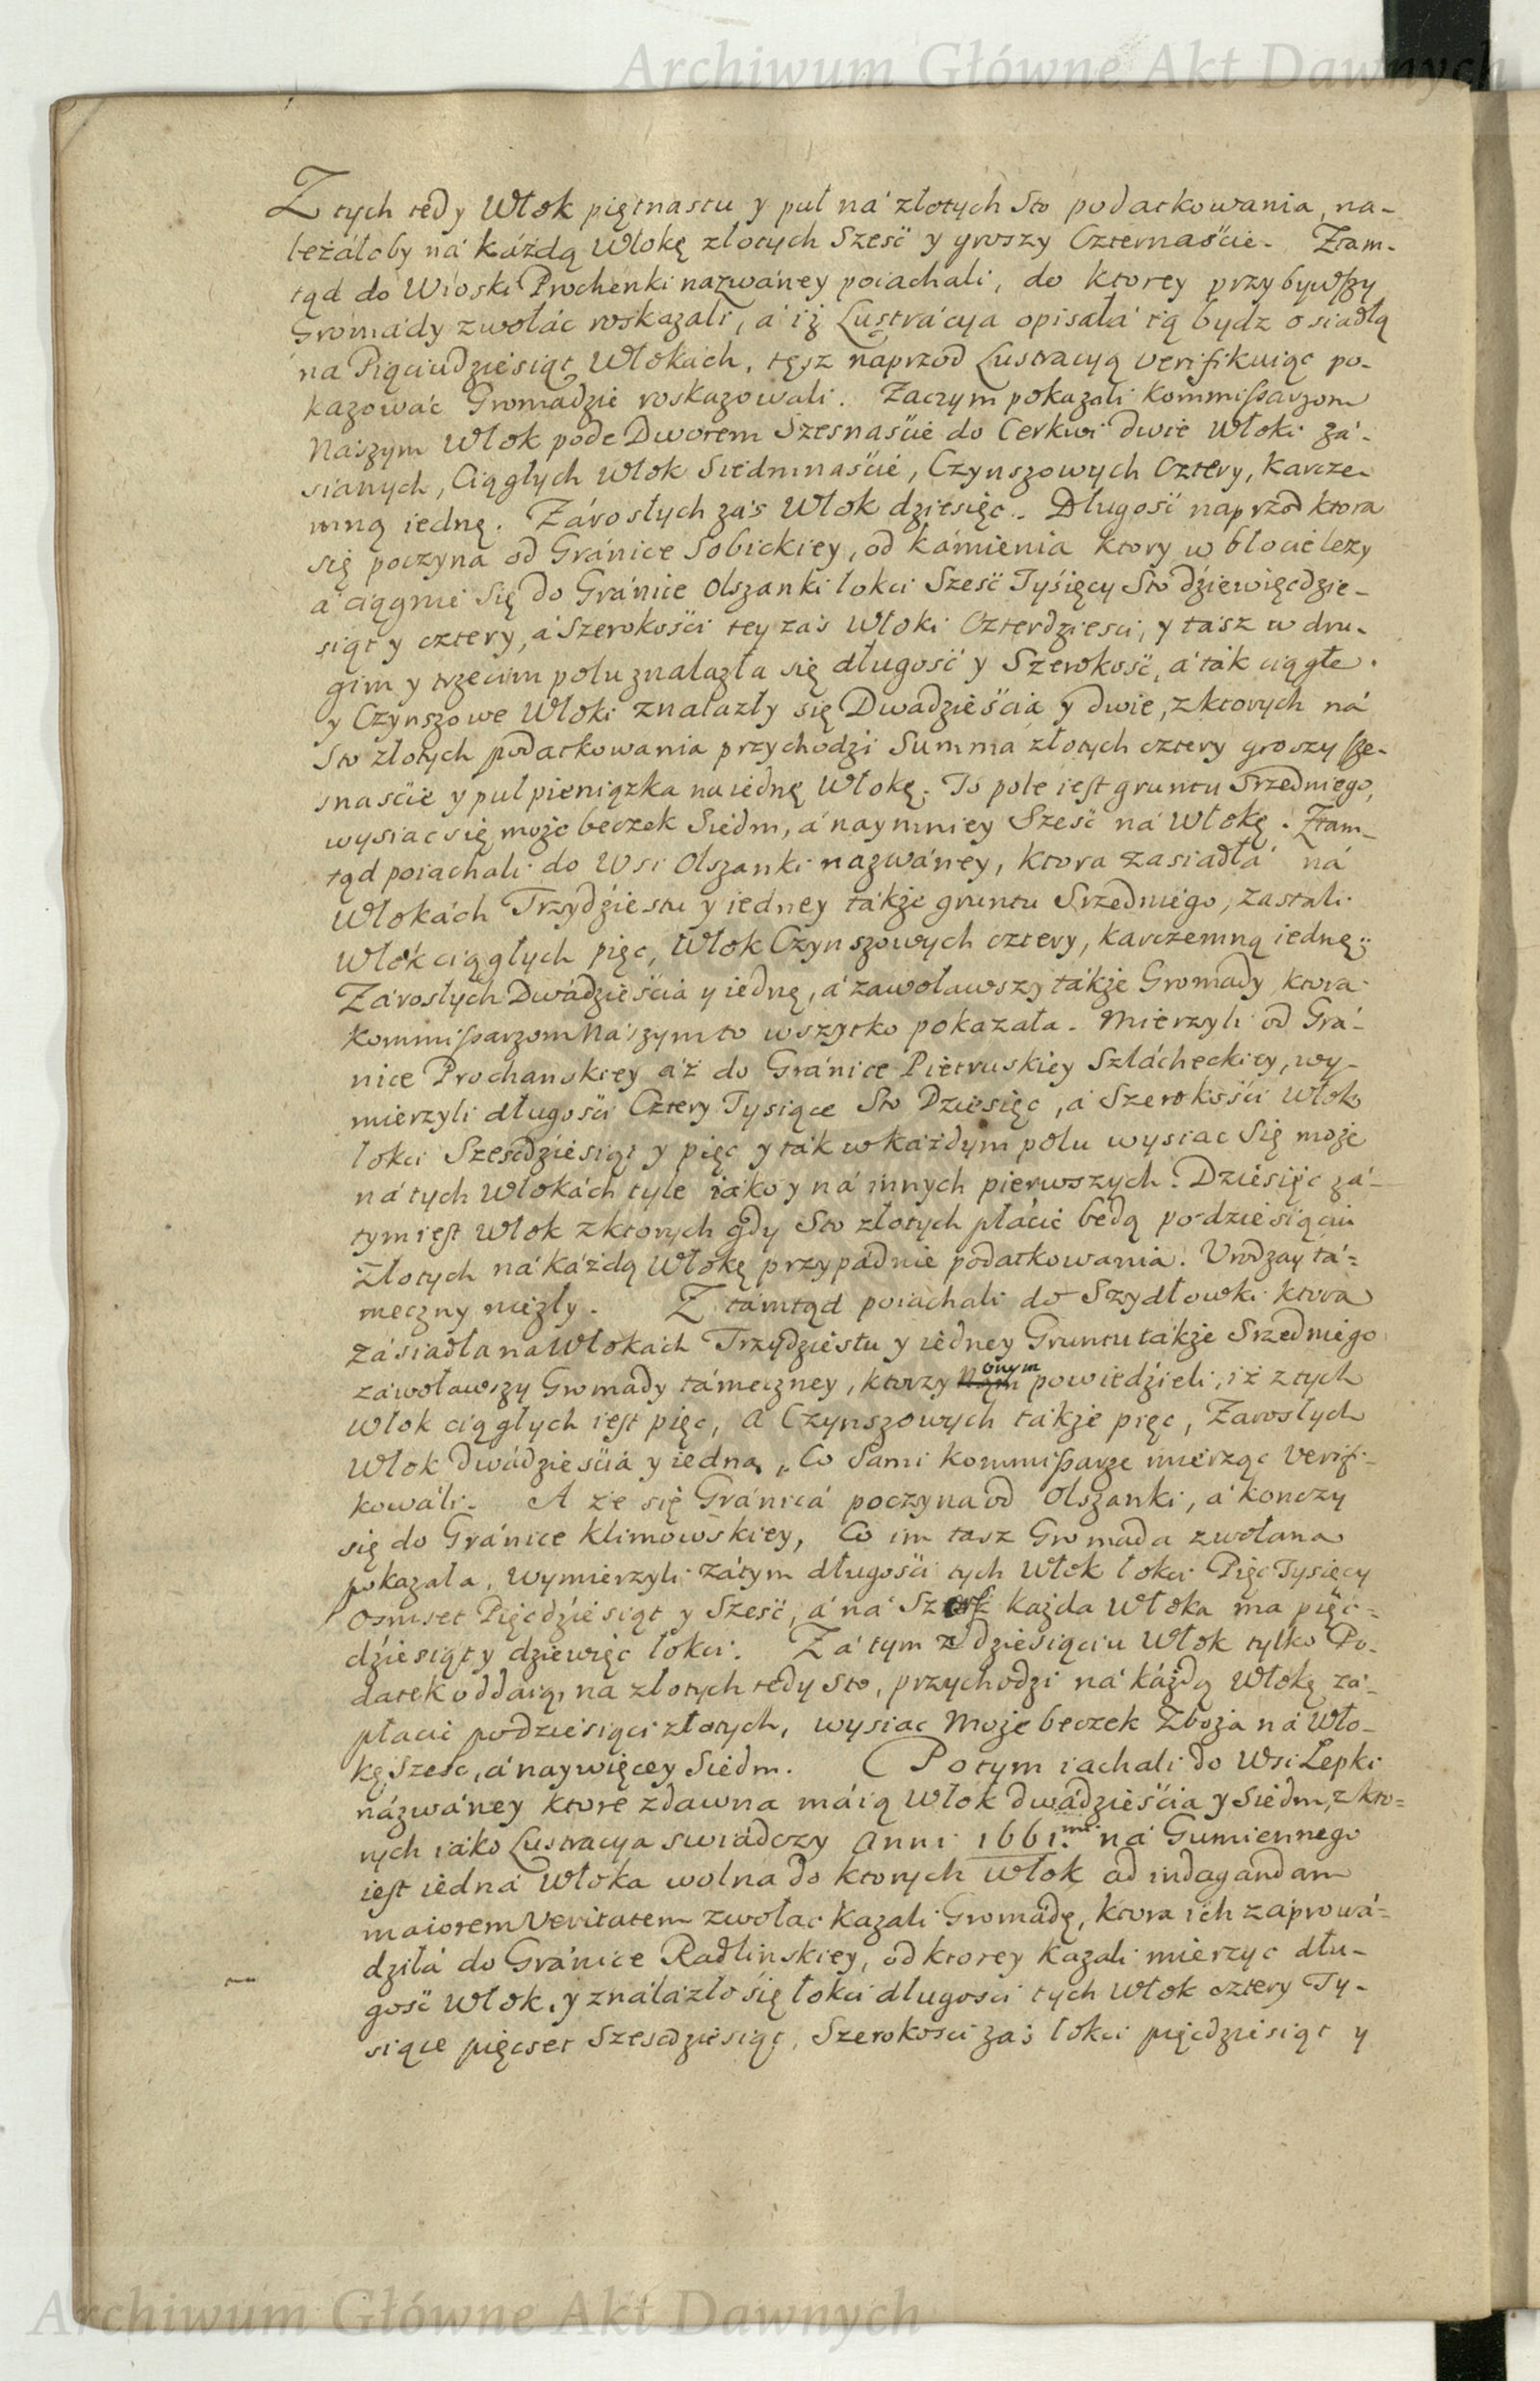 Archiwum Główne Akt Dawnych
Z tych tedy Włok piętnastu y puł na złotych Sto podatkowania, na-
leżáłoby ná káżdą Włokę złotych Szesć y groszy Czternaście. Ztam-
tąd do Wioski Prochenki nazwáney poiachali, do ktorey przybywszy
Gromády zwołáć roskazali, á iż Lustrácya opisała ią bydz osiadłą
na Pięciudziesiąt Włokach, tęsz naprzod Lustracyą verifikuiąc po-
kazowáć Gromadzie roskazowali. Zaczym pokazali Kommissarzom
Naszym Włok pode Dworem Szesnaście do Cerkwi dwie Włoki zá-
sianych, Ciągłych Włok Siedmnaście, Czynszowych Cztery, Karcze-
mną iednę. Zárosłych zaś Włok dziesięc. Długość naprzod ktora
się poczyna od Gránice Sobickiey, od kámienia ktory w błocie leży
á ciągnie się do Gránice Olszanki łokci Sześć Tysięcy Sto dziewięcdzie-
siąt y cztery, á Szerokości tey zaś Włoki Czterdziesci, y tasz w dru-
gim y trzecim polu znalazła się długość y Szerokość, á ták ciągłe
y Czynszowe Włoki znalazły się Dwadzieścia y dwie, z ktorych ná
Sto złotych podatkowania przychodzi Summa złotych cztery groszy sze-
snaście y pul pieniązka na iednę Włokę. To pole iest gruntu Srzedniego,
wysiac się może beczek Siedm, á naymniey Sześć ná Włokę. Ztam-
tąd poiachali do Wsi Olszanki nazwáney, ktora zasiadłá ná
Włokách Trzydziestu y iedney także gruntu Srzedniego, zastali
Włok ciągłych pięc, Włok Czynszowych cztery, karczemną iednę
Zárosłych Dwádzieścia y iednę, á zawoławszy tákże Gromady ktora
Kommissarzom Naszym to wszytko pokazała. Mierzyli od Grá-
nice Prochanskiey áż do Gránice Pietruskiey Szlácheckiey, wy-
mierzyli długości Cztery Tysiące Sto Dziesięc, á Szerokości Włok
łokci Sześcdziesiąt y pięc y ták w każdym polu wysiac Się może
ná tych Włokách tyle iáko y ná innych pierwszych. Dziesięc zá-
tym iest Włok z ktorych gdy Sto złotych płácić będą po dziesiąciu
Złotych ná káżdą Włokę przypádnie podatkowania. Urodzay tá-
meczny niezły. Z támtąd poiachali do Szydłowki ktora
zásiadła na Włokach Trzydziestu y iedney Gruntu także Srzedniego
zawoławszy Gromady támeczney, ktorzy Nam onym powiedzieli, iż z tych
Włok ciągłych iest pięc, a Czynszowych także pięc, Zarosłych
Włok dwádzieściá y iedna, Co Sami Kommissarze mierząc verifi-
kowáli. A że się Gránicá poczyna od Olszanki, á konczy
się do Gránice Klimowskiey, Co im tasz Gromáda zwołana
pokazała, wymierzyli zátym długości tych Włok łokci Pięc Tysięcy
Osmset Pięcdziesiąt y Sześć, á ná Szerz każda Włoka ma pięc-
dziesiąt y dziewięc łokci. Zá tym z dziesiąciu Włok tylko Po-
datek oddaią, na złotych tedy Sto, przychodzi ná káżdą Włokę zá-
płacić po dziesiąci złotych, wysiac Może beczek Zboża ná Wło-
kę Sześc, á naywięcey Siedm. Potym iachali do Wsi Łepki
názwáney ktore zdawna máią Włok dwádzieścia y Siedm, z kto-
rych iáko Lustracya swiádczy Anni 1661.mi ná Gumiennego
iest iedná Włoka wolna do ktorych Włok ad indagandam
maiorem Veritatem zwołac kazali Gromádę, ktora ich záprowá-
dziłá do Gránice Radlinskiey, od ktorey kazali mierzyc dłu-
gość Włok, y ználázło się łokci długosci tych Włok cztery Ty-
siące pięcset Szescdziesiąt, Szerokosci zaś łokci pięcdziesiąt y
Archiwum Główne Akt Dawnych